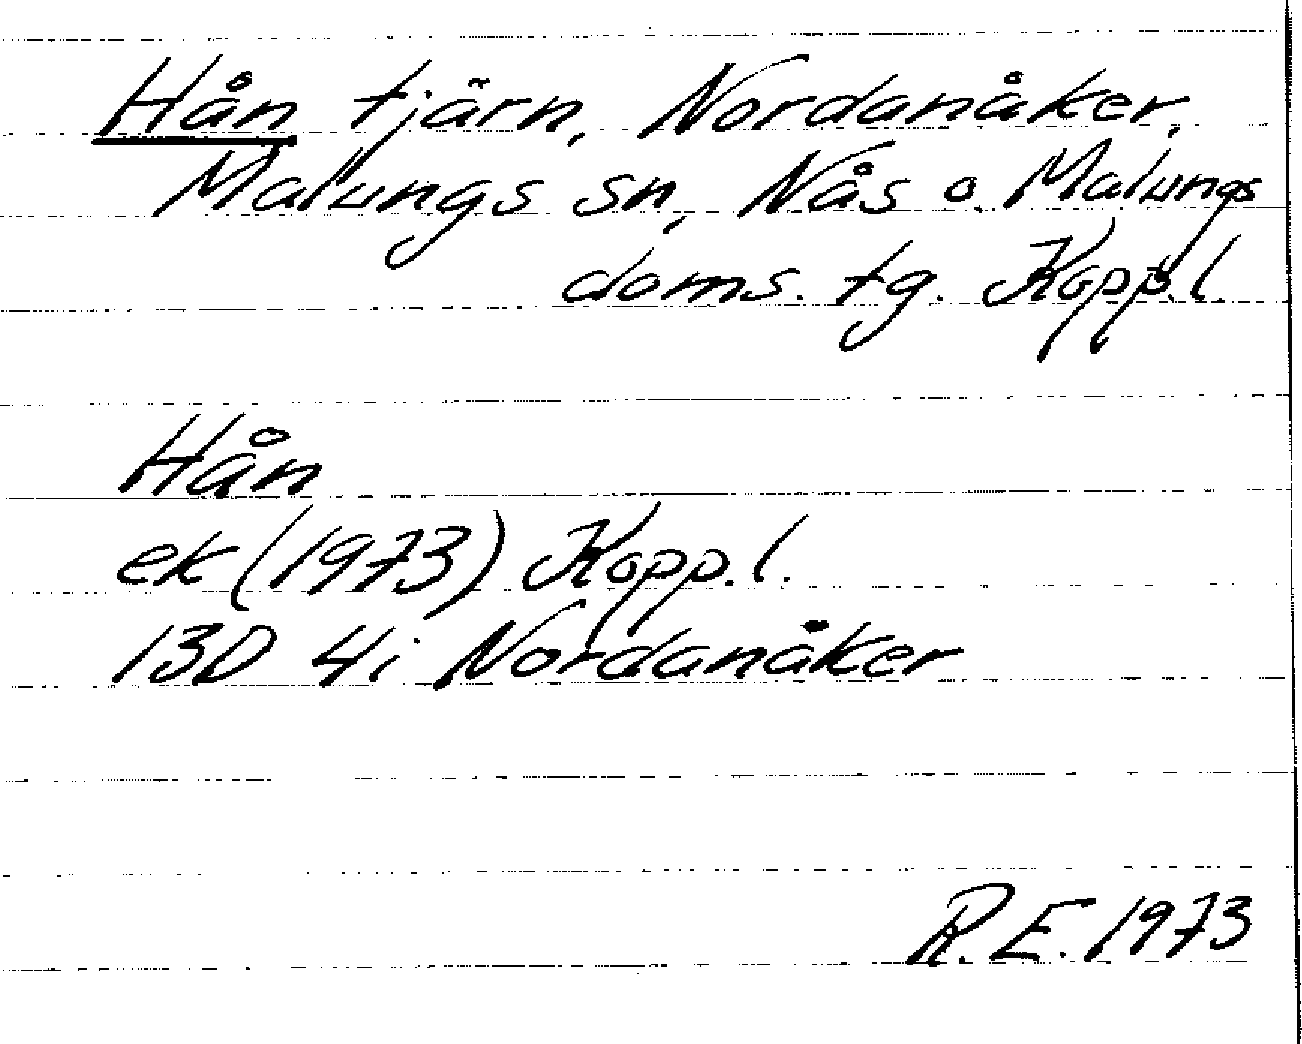 Hån tjärn, Nordanåker,
Malungs sn, Nås o. Malungs
doms. tg. Kopp.l.
Hån
ek (1973) Kopp.l.
13D 4i Nordanåker
R.E. 1973